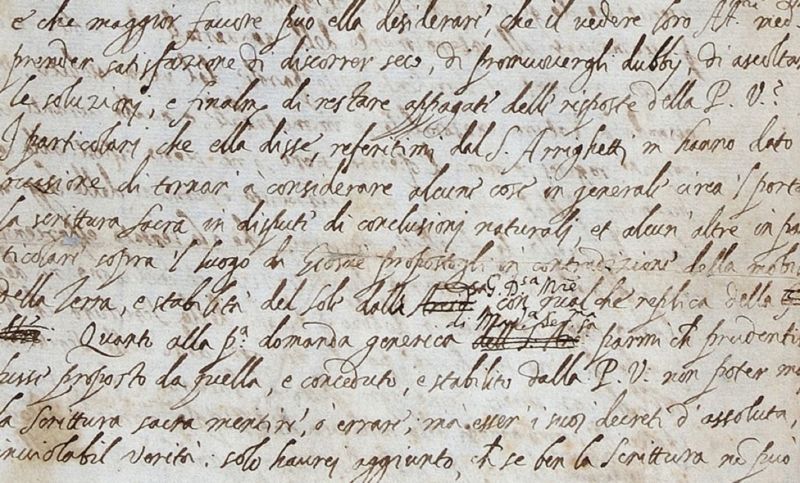 e che maggior favore può ella desiderare, che il vedere loro Alt.
prender satisfazione di discorrer seco, di promuovergli dubbij, di ascoltar
le soluzioni, e finalm. di restare appagate delle risposte della P. V.?
I particolari che ella disse, referitimi dal S. Arrighetti m hanno dato
occasione di tornar à considerare alcune cose in generale circa 'l portar
la scrittura sacra in dispute di conclusioni naturali, et alcun' altre in par
ticolare sopra 'l luogo di Giosuè propostogli in contradizione della mobil
della Terra, e stabilità del Sole dalla con qualche replica della
di Mad.a Ser.ma
Quanto alla p.a domanda generica parmi ch prudentiss
fusse proposto da quella, e conceduto, e stabilito dalla P. V. non poter mai
la scrittura sacra mentire, ò errare, mà esser' i suoi decreti d' assoluta,
inviolabil verità: solo haurei aggiunto, ch se ben la scrittura nō può